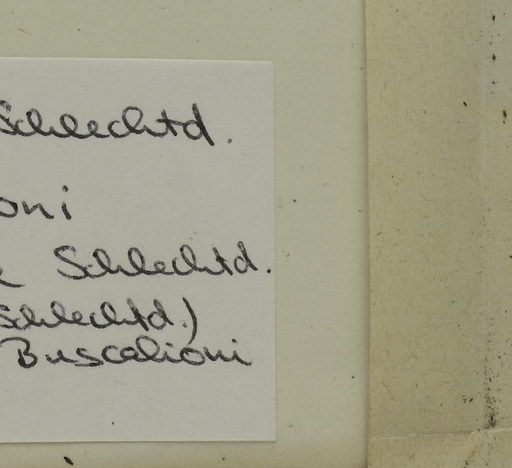 Schlechtd.
oni
Schlechtd.
Schlechtd.)
Buscalioni